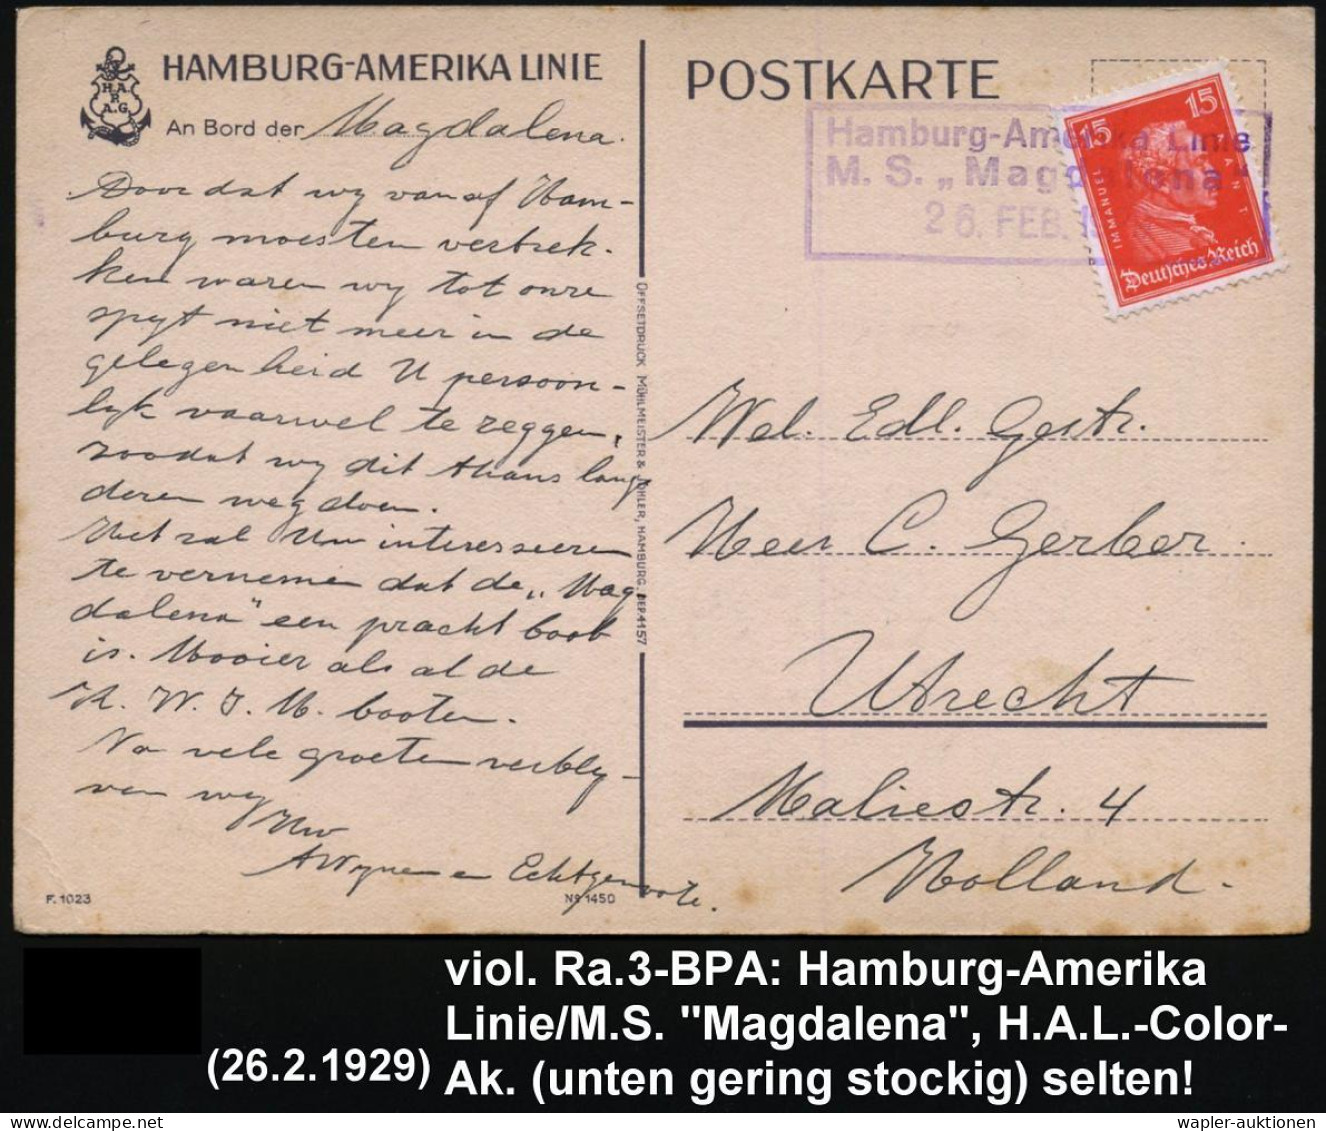 HAMBURG-AMERIKA LINIE
H. A.
P.
A. G.
An Bord der Magdalena.
Doordat wy vanaf Ham-
burg moesten vertrek-
ken waren wy tot onze
spyt niet meer in de
gelegenheid U persoon-
lyk vaarwel te zeggen,
zoodat wy dit thans langs
deren weg doen.
Het zal Uw interesseeren
te vernemen dat de „Mag
dalena" een pracht boot
is. Mooier als al de
K. W. I. M. booten.
Na vele groeten verbly-
ven wy
Uw
en Echtgenoote.
F. 1023
No 1450
OFFSETDRUCK MÜHLMEISTER & JOHLER, HAMBURG. DEP.4157
POSTKARTE
Hamburg-Amerika Linie
M. S. „Magdalena"
26. FEB. 1
15 15
IMMANUEL KANT
Deutsches Reich
Wel. Edl. Gestr.
Heer C. Gerber.
Utrecht
Maliestr. 4
Holland.
(26.2.1929)
viol. Ra.3-BPA: Hamburg-Amerika
Linie/M.S. "Magdalena", H.A.L.-Color-
Ak. (unten gering stockig) selten!
www.delcampe.net
wapler-auktionen